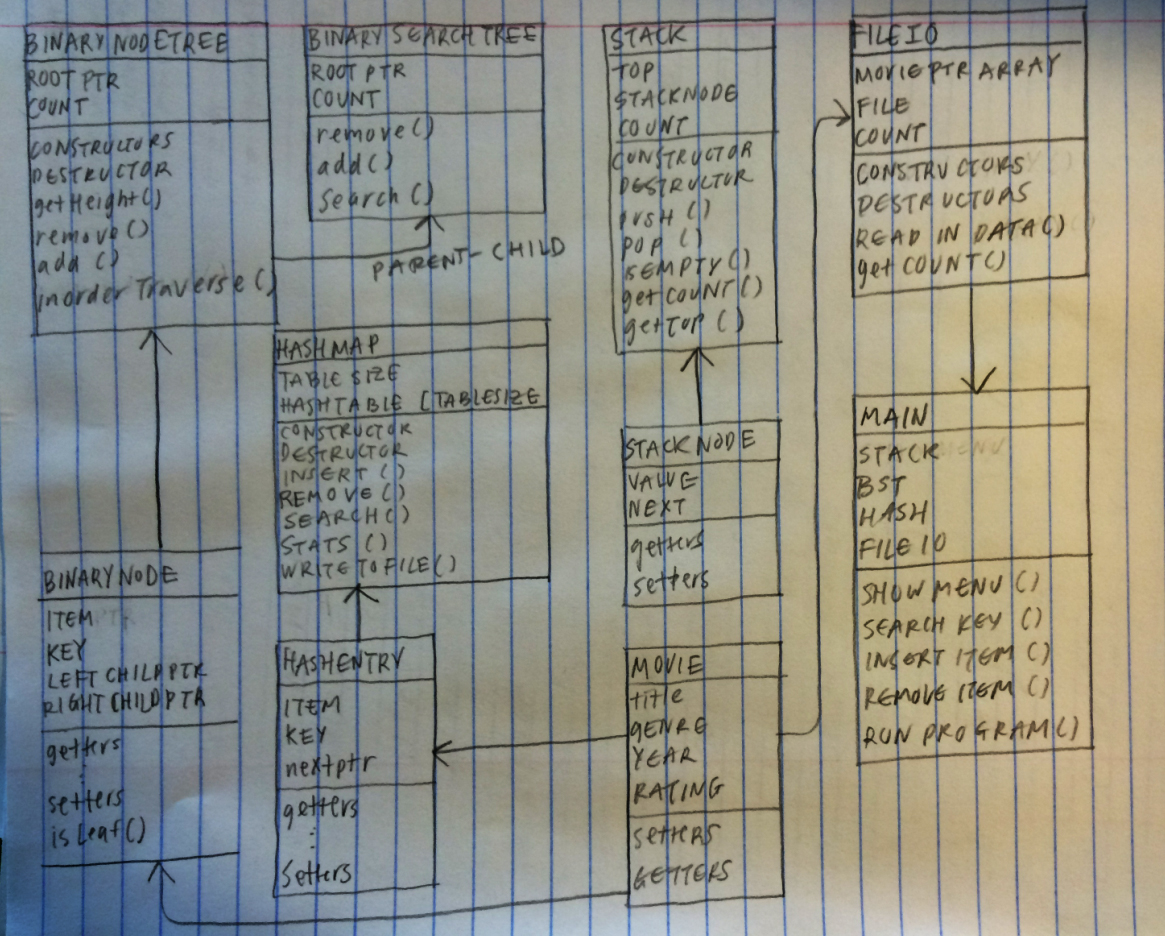 BINARY NODETREE
ROOT PTR
COUNT
CONSTRUCTORS
DESTRUCTOR
getHeight()
remove()
add ()
inorder Traverse ()
BINARY SEARCH TREE
ROOT PTR
COUNT
remove()
add()
Search ()
PARENT-CHILD
STACK
TOP
STACKNODE
COUNT
CONSTRUCTOR
DESTRUCTOR
PUSH ()
POP ()
isEMPTY()
getCOUNT()
getTOP ()
FILE IO
MOVIE PTR ARRAY
FILE
COUNT
CONSTRUCTORS
DESTRUCTORS
READ IN DATA()
getCOUNT()
HASHMAP
TABLE SIZE
HASHTABLE [TABLESIZE
CONSTRUCTOR
DESTRUCTOR
INSERT ()
REMOVE ()
SEARCH()
STATS ()
WRITE TO FILE()
STACK NODE
VALUE
NEXT
getters
setters
MAIN
STACK
BST
HASH
FILE IO
SHOW MENU ()
SEARCH KEY ()
INSERT ITEM ()
REMOVE ITEM ()
RUN PROGRAM()
BINARY NODE
ITEM
KEY
LEFT CHILD PTR
RIGHT CHILD PTR
getters
:
setters
is Leaf()
HASHENTRY
ITEM
KEY
nextptr
getters
:
Setters
MOVIE
title
GENRE
YEAR
RATING
SETTERS
GETTERS